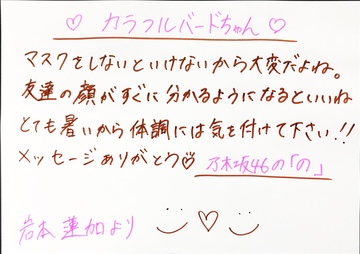 ♡ カラフルバードちゃん ♡
マスクをしないといけないから大変だよね。
友達の顔がすぐに分かるようになるといいね
とても暑いから体調には気を付けて下さい!!
メッセージありがとう♡ 乃木坂46の「の」
岩本 蓮加より